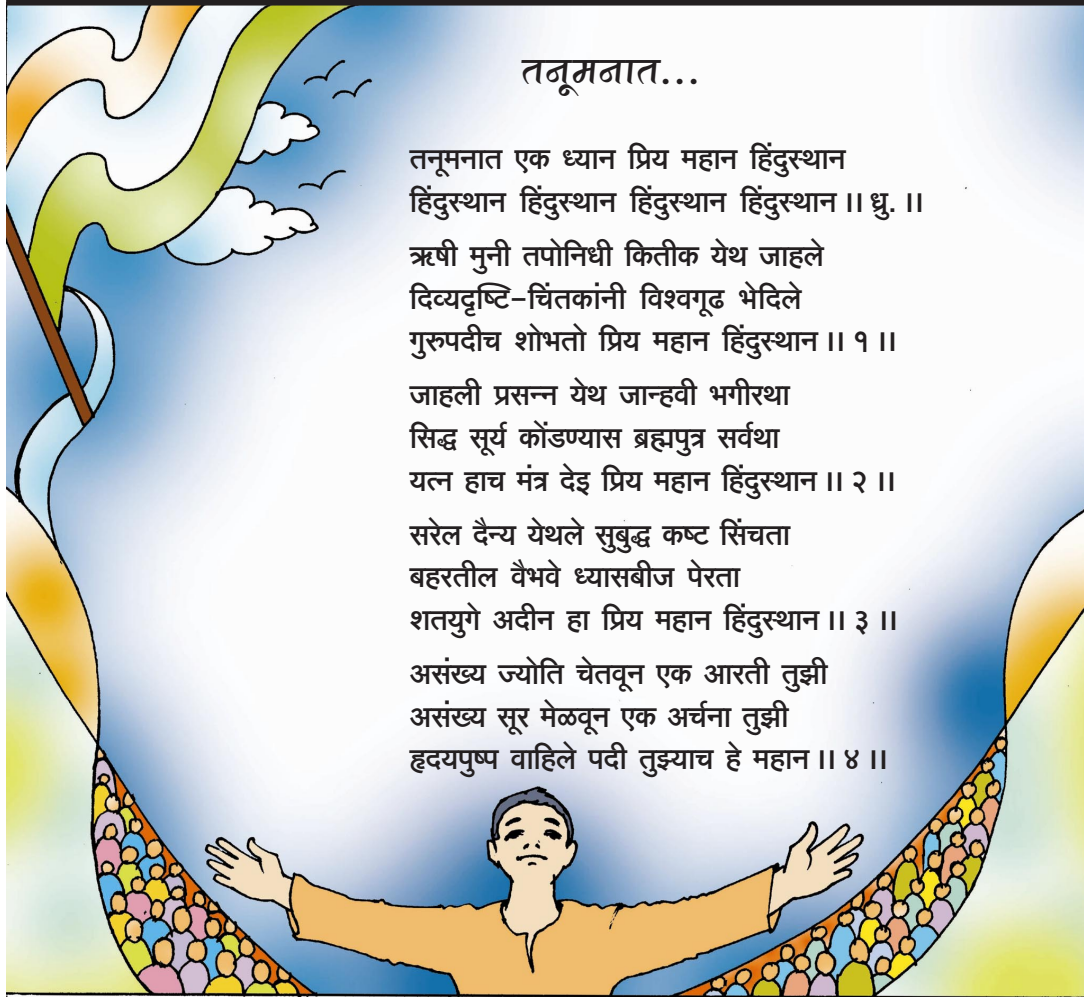 तनूमनात...
तनूमनात एक ध्यान प्रिय महान हिंदुस्थान
हिंदुस्थान हिंदुस्थान हिंदुस्थान हिंदुस्थान ॥ ध्रु. ॥
ऋषी मुनी तपोनिधी कितीक येथ जाहले
दिव्यदृष्टि-चिंतकांनी विश्वगूढ भेदिले
गुरुपदीच शोभतो प्रिय महान हिंदुस्थान ॥ १ ॥
जाहली प्रसन्न येथ जान्हवी भगीरथा
सिद्ध सूर्य कोंडण्यास ब्रह्मपुत्र सर्वथा
यत्न हाच मंत्र देइ प्रिय महान हिंदुस्थान ॥ २ ॥
सरेल दैन्य येथले सुबुद्ध कष्ट सिंचता
बहरतील वैभवे ध्यासबीज पेरता
शतयुगे अदीन हा प्रिय महान हिंदुस्थान ॥ ३ ॥
असंख्य ज्योति चेतवून एक आरती तुझी
असंख्य सूर मेळवून एक अर्चना तुझी
हृदयपुष्प वाहिले पदी तुझ्याच हे महान ॥ ४ ॥